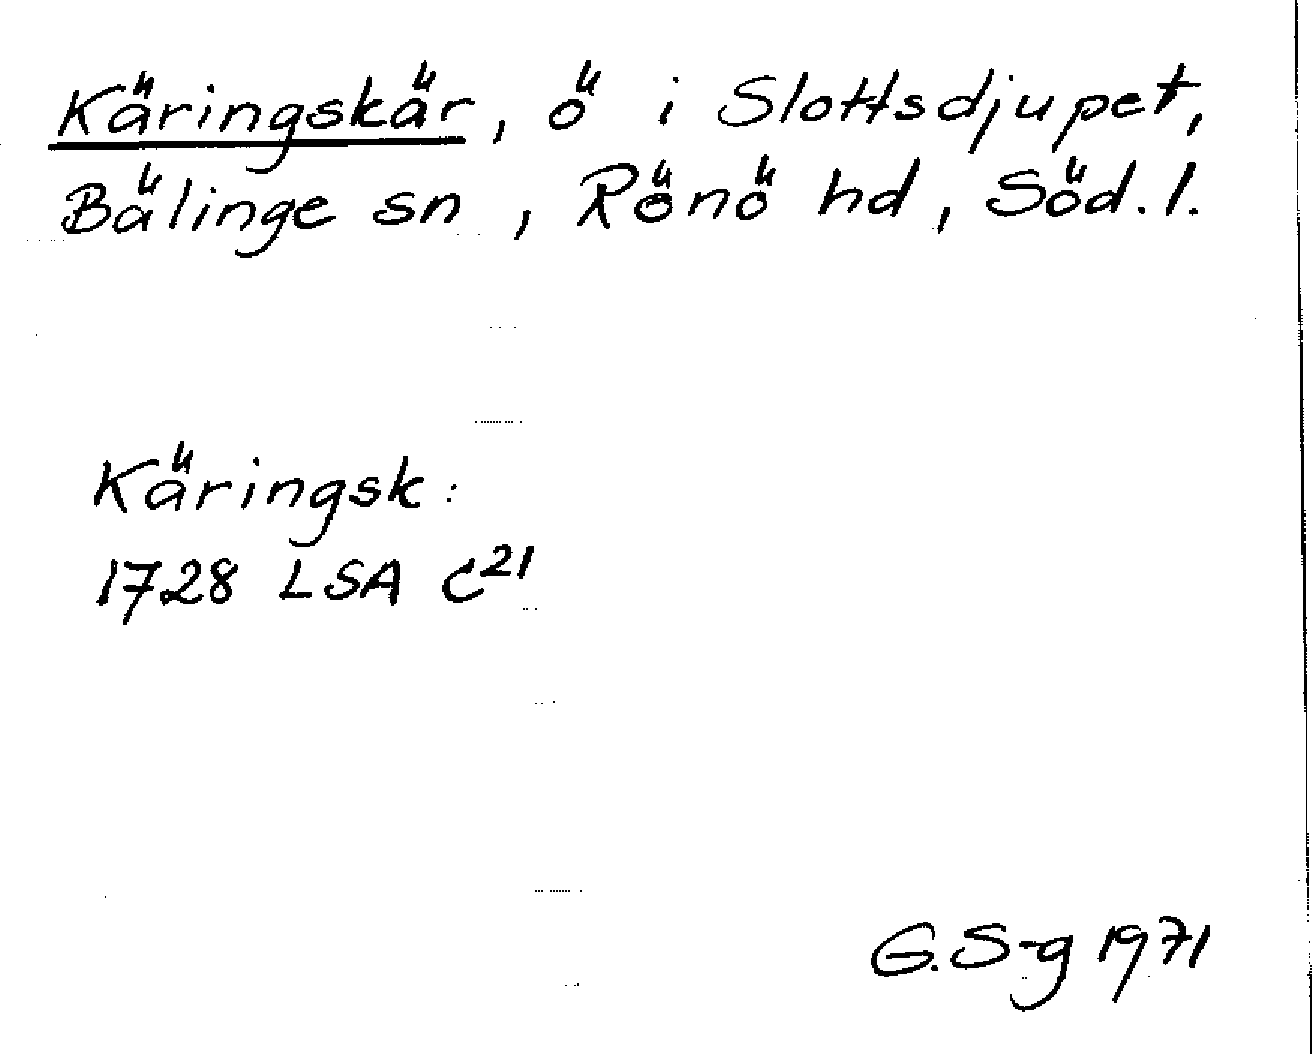 Käringskär, ö i Slottsdjupet,
Bälinge sn, Rönö hd, Söd. l.
Käringsk:
1728 LSA C²¹
G. S-g 1971